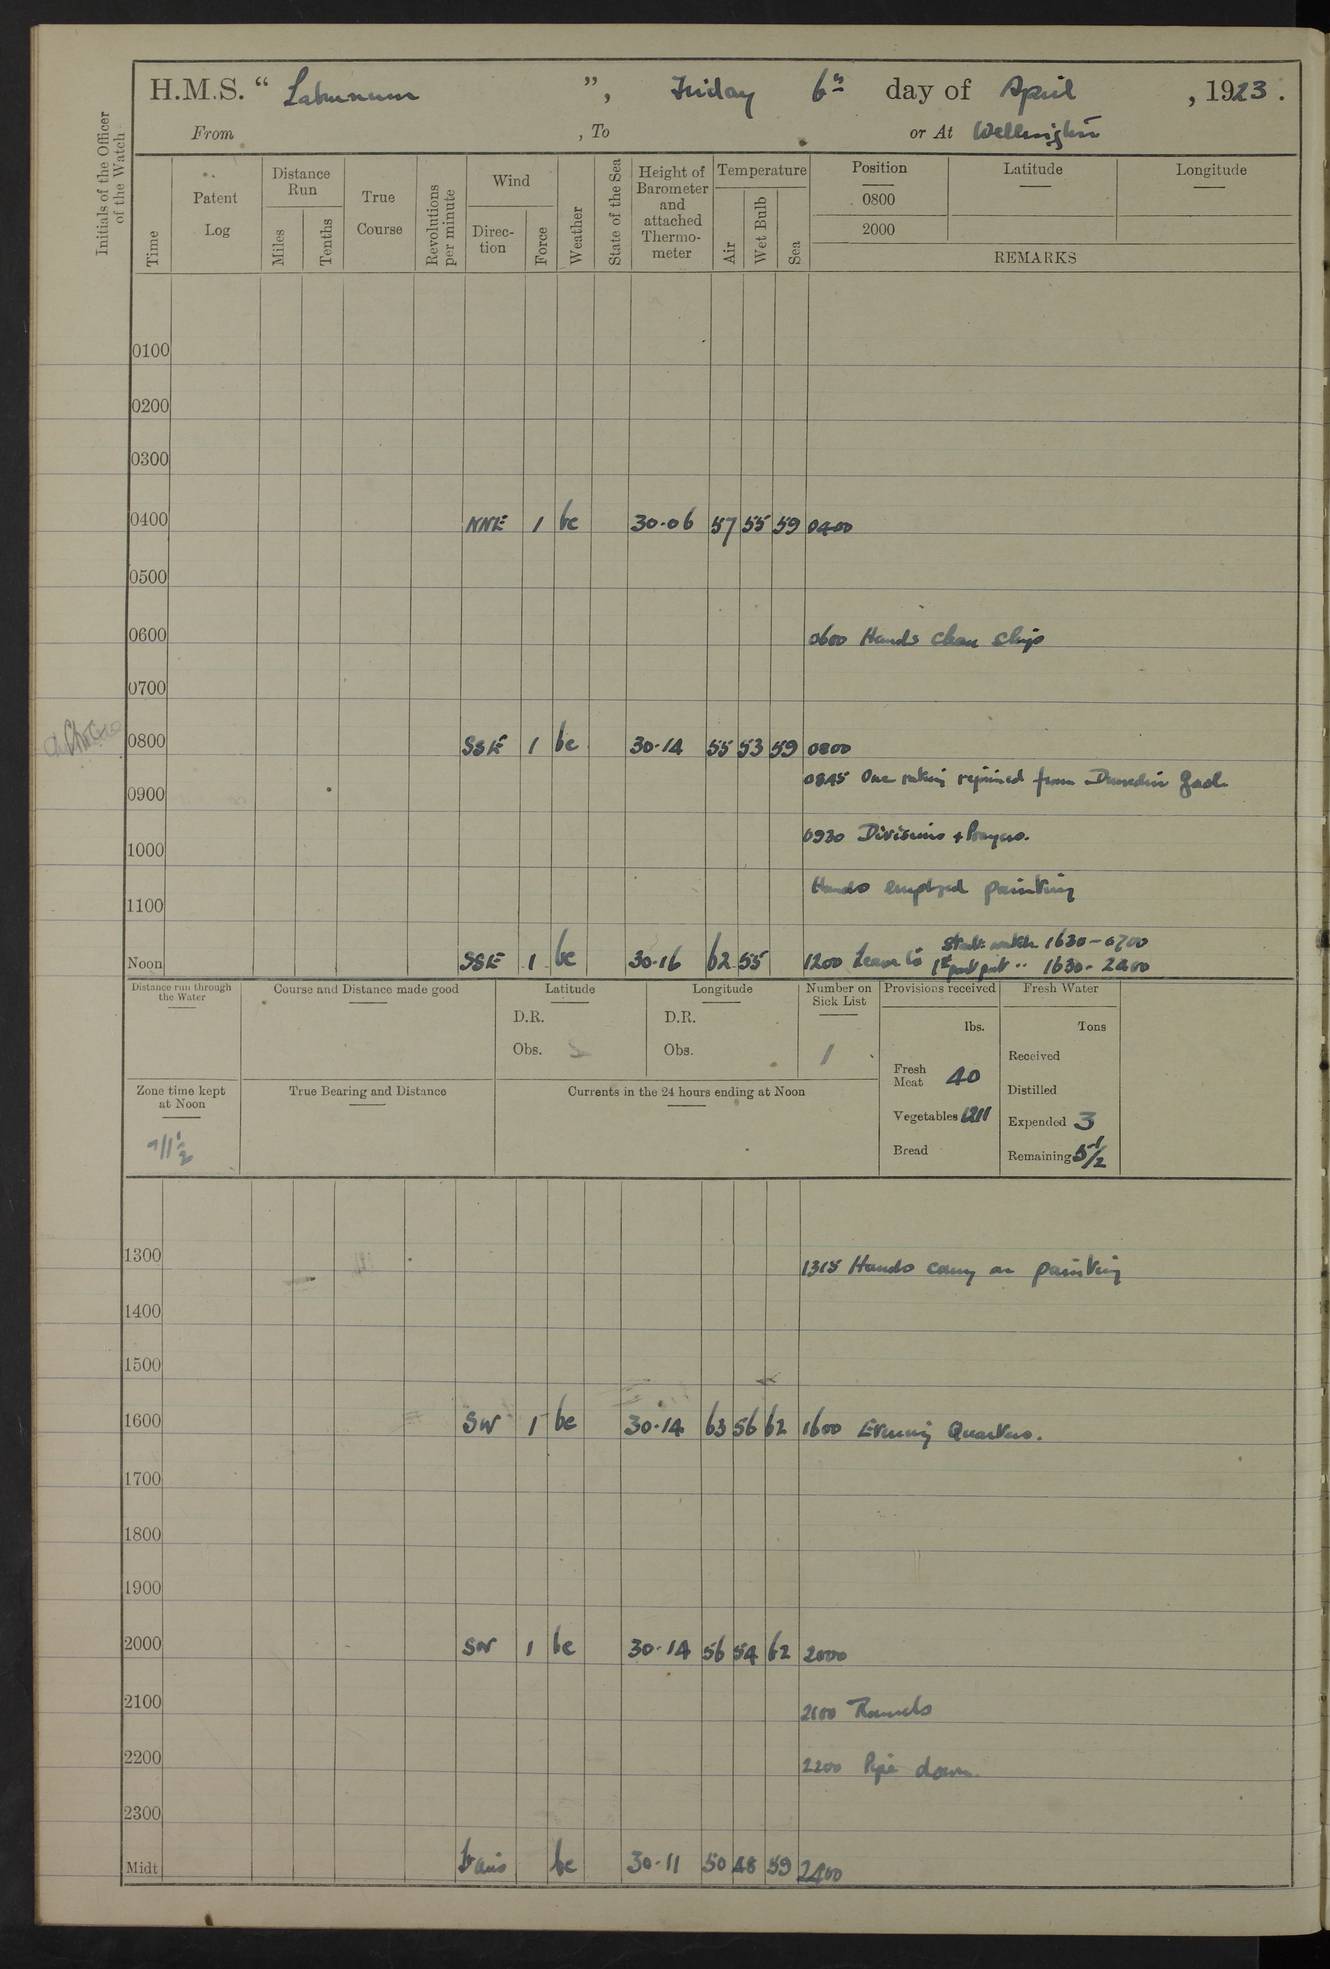 H.M.S. “ Laburnum ”, Friday 6th day of April , 1923 .
From , To or At Wellington
Initials of the Officer of the Watch
Time
Patent Log
Distance Run
Miles
Tenths
True Course
Revolutions per minute
Wind
Direc- tion
Force
Weather
State of the Sea
Height of Barometer and attached Thermo- meter
Temperature
Air
Wet Bulb
Sea
Position Latitude Longitude
0800
2000
REMARKS
0100
0200
0300
0400 NNE 1 bc 30·06 57 55 59 0400
0500
0600 0600 Hands clean ship
0700
0800 SSE 1 bc 30·14 55 53 59 0800
0845 One rating rejoined from Dunedin Gaol
0900
0930 Divisions + Prayers.
1000
Hands employed painting
1100
Noon SSE 1 bc 30·16 62 55 1200 Leave to Starb: watch 1630 – 0700
1st part port " 1630 - 2400
Distance run through the Water
Course and Distance made good
Latitude
D.R.
Obs.
Longitude
D.R.
Obs.
Number on Sick List
1
Provisions received
lbs.
Fresh Meat 40
Vegetables 1211
Bread
Fresh Water
Tons
Received
Distilled
Expended 3
Remaining 5½
Zone time kept at Noon
-11½
True Bearing and Distance
Currents in the 24 hours ending at Noon
1300 1315 Hands carry on painting
1400
1500
1600 SW 1 bc 30·14 63 56 62 1600 Evening Quarters.
1700
1800
1900
2000 SW 1 bc 30·14 56 54 62 2000
2100 2100 Rounds
2200 2200 Pipe down.
2300
Midt bc 30·11 50 48 59 2400